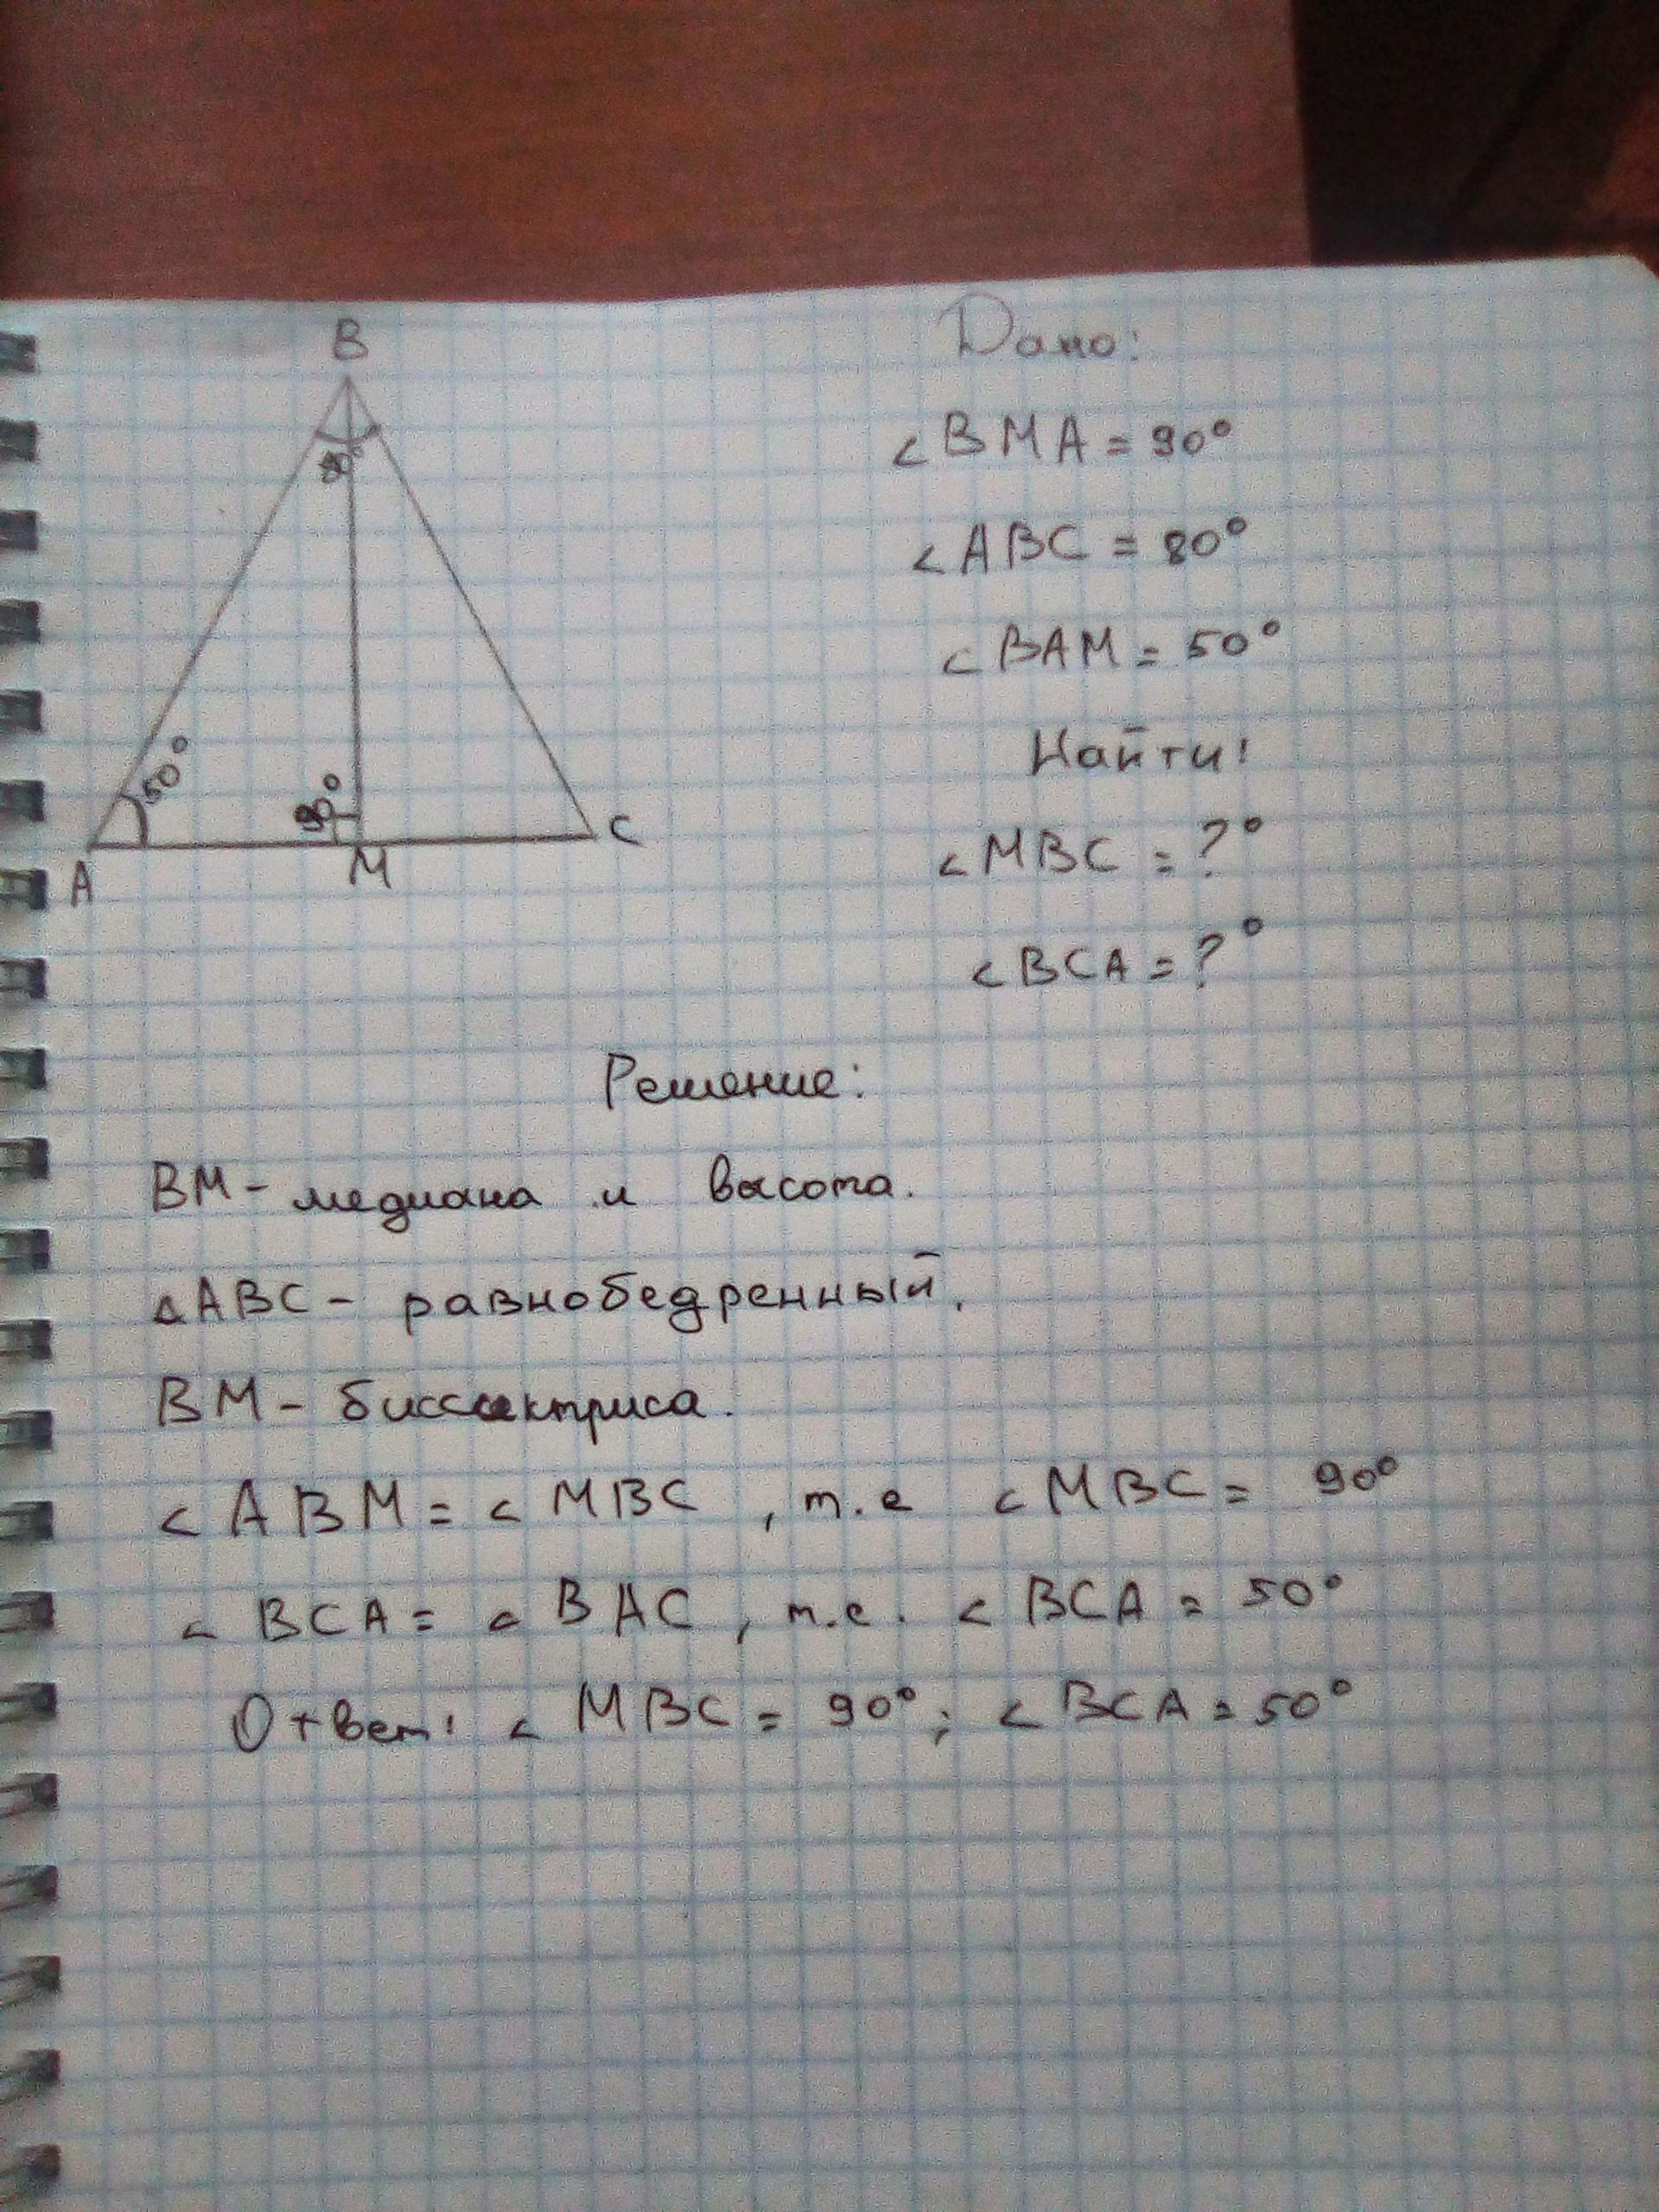 B
Дано:
80°
<BMA = 90°
<ABC = 80°
<BAM = 50°
50°
90°
A
M
C
Найти:
<MBC = ?°
<BCA = ?°
Решение:
BM - медиана и высота.
△ABC - равнобедренный.
BM - биссектриса.
<ABM = <MBC, т.е <MBC = 90°
<BCA = <BAC, т.е. <BCA = 50°
Ответ: <MBC = 90°; <BCA = 50°